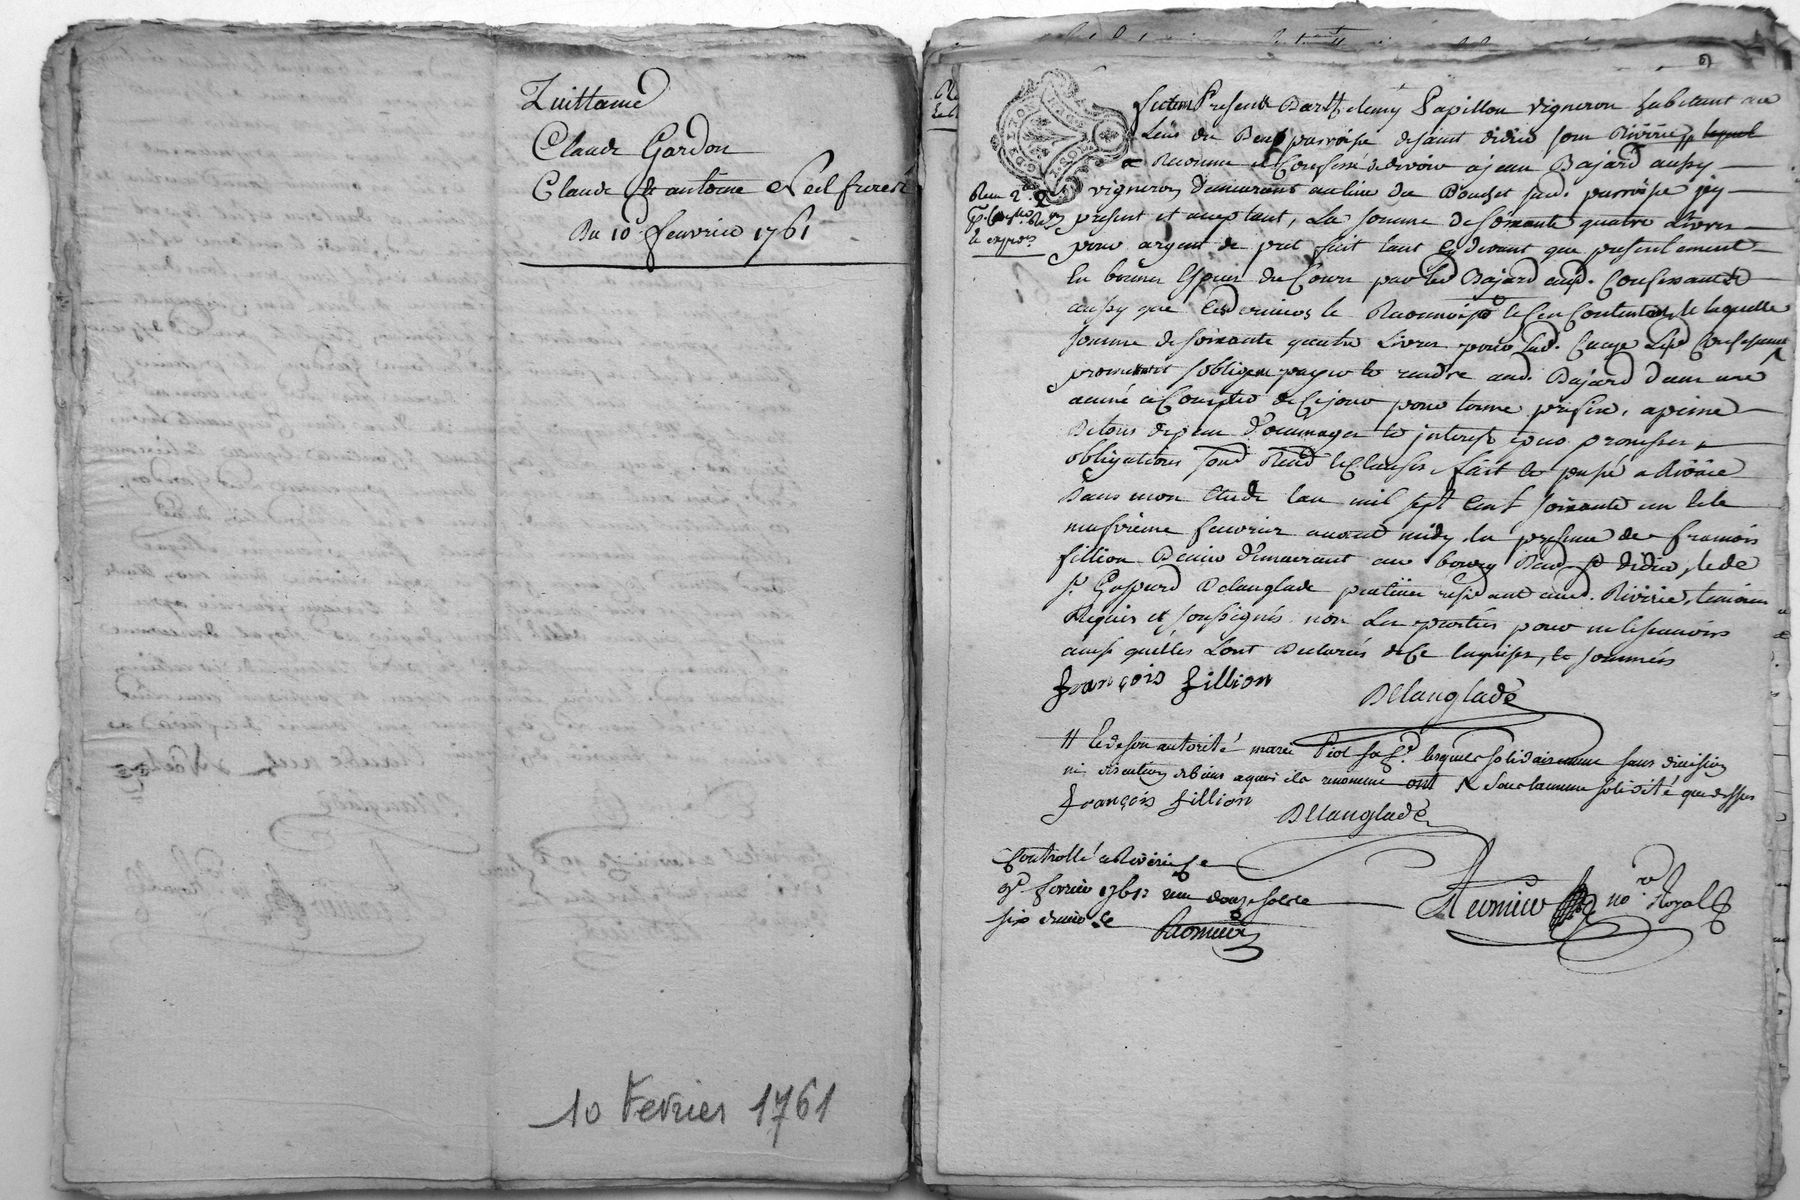 Quittance
Claude Gardon
Claude & antoine Neel freres
Du 10 feuvrier 1761
10 Fevrier 1761
fut Present Barthelemy Papillon vigneron habitant au
Lieu du parroisse de saint didier sous Riverie lequel
a Reconnu et Confessé devoir a jean Bajard aussy
vigneron demeurant au lieu du Bouchet susd. parroisse jcy
present et acceptant, La somme de soixante quatre Livres
pour argent de pret fait tant cy devant que presentement
En bonnes Especes du Cours par led Bajard aud. Confessant
aussy que led le Reconnoist de laquelle
somme de soixante quatre Livres pour lad. Cause led Confessant
promet s'oblige payer & rendre aud. Bajard dans une
année a Compter de Ce jour pour terme prefix, a peine
De tous depens dommages & jnterest par promesses
obligations soub Rend & Clauses fait & passé a Riverie
Dans mon Etude l'an mil sept Cent soixante un & le
neufvieme feuvrier avant midy, En presence de francois
fillion demeurant au bourg Dud. St didier, & de
Sr Gaspard Delanglade praticien residant aud. Riverie, temoins
Requis et soussignés non Les parties pour ne scavoir
ainsi quelles L'ont Declarés de Ce Enquises, & sommées
françois fillion
Dellanglade
// & de son autorité marie Piot sa fe. lesquels solidairement sans division
ni discution de biens a quoi ils renoncent ont sous la meme solidité que dessus
françois fillion
Dellanglade
Controllé a Riverie Le
9e fevrier 1761 reçu douze sols
six deniers
Reomieu
Reomieu nore Royal